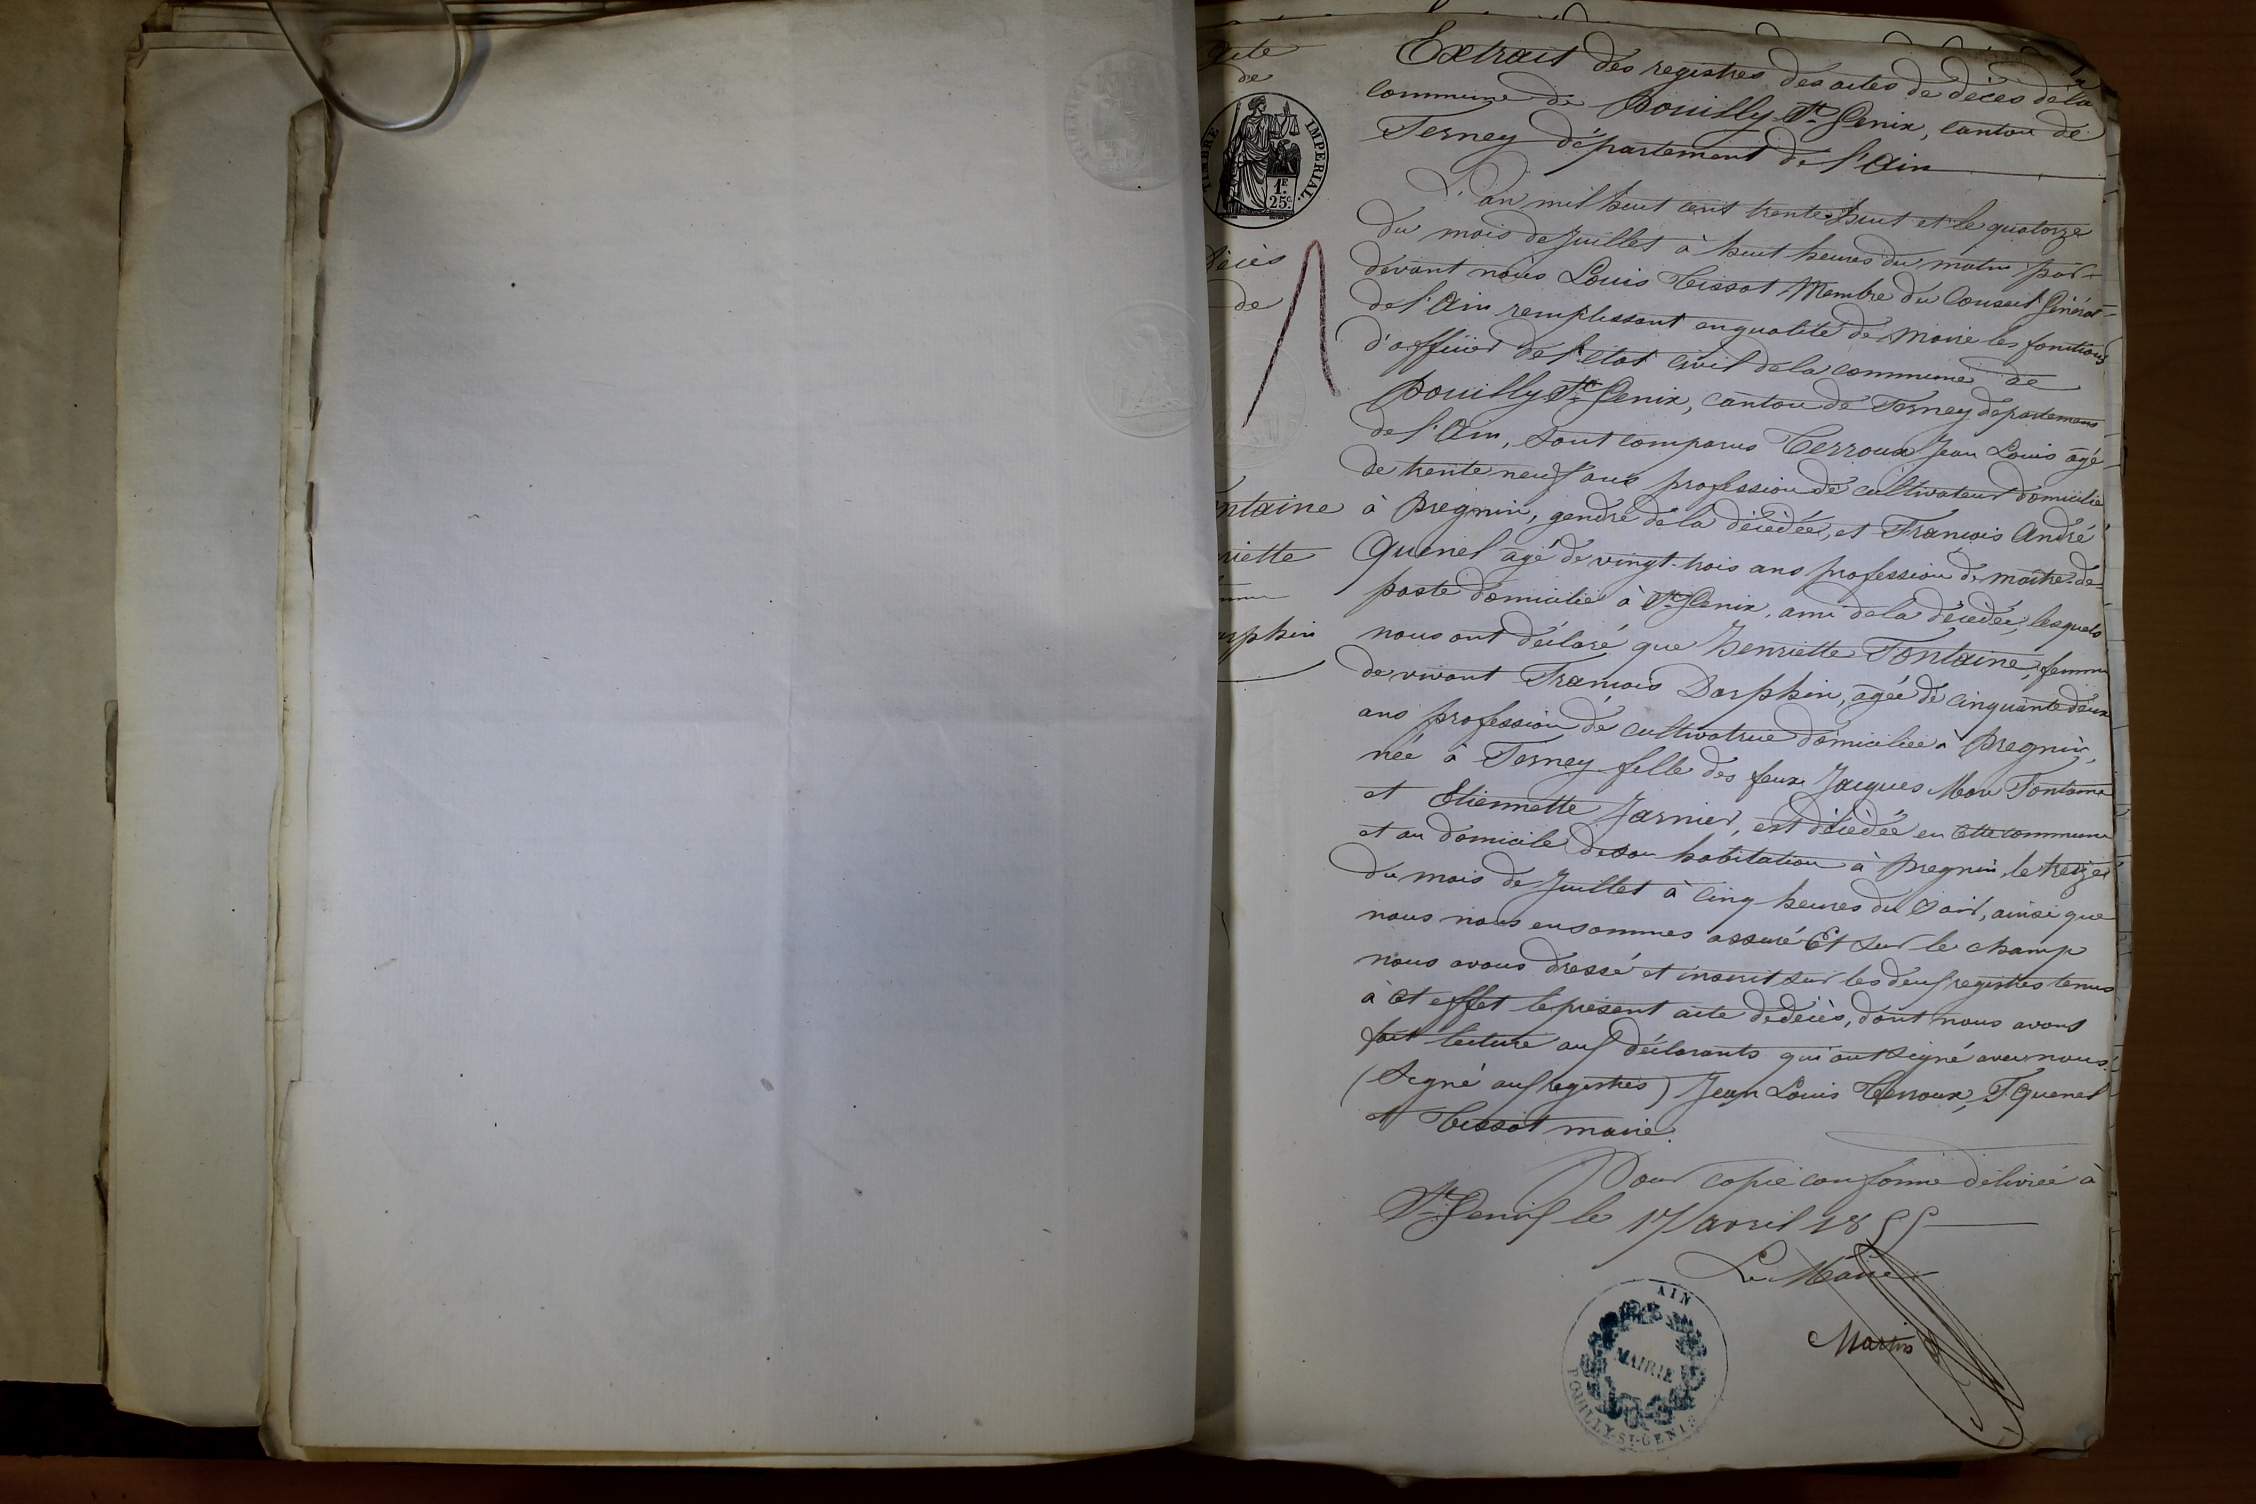 Acte
de
TIMBRE IMPERIAL.
1F.
25c.
Décès
de
ntaine
riette
rphin
Extrait des registres des actes de décès de la
commune de Pouilly St Genix, canton de
Ferney département de l'Ain
L'an mil huit cent trente-huit et le quatorze
du mois de Juillet à huit heures du matin par-
devant nous Louis Tissot Membre du Conseil Général
de l'Ain remplissant en qualité de Maire les fonctions
d'officier de l'état civil de la commune de
Pouilly St Genix, canton de Ferney département
de l'Ain, sont comparus Terroux Jean Louis agé
de trente neuf ans profession de cultivateur domicilié
à Pregnin, gendre de la décédée, et François André
Quenel agé de vingt-trois ans profession de maître-de-
poste domicilié à St Genix, ami de la décédée, lesquels
nous ont déclaré que henriette Fontaine, femme
de vivant François Darphin, agée de cinquante deux
ans profession de cultivatrice domiciliée à Pregnin,
née à Ferney fille des feux Jacques Marc Fontaine
et Etiennette Jarnier, est décédée en cette commune
et au domicile de son habitation à Pregnin, le treize
du mois de Juillet à cinq heures du soir, ainsi que
nous nous en sommes assuré Et sur le champ
nous avons dressé et inscrit sur les deux registres tenus
à cet effet le présent acte de décès, dont nous avons
fait lecture aux déclarants qui ont signé avec nous.
(Signé aux registres) Jean Louis Terroux, F. Quenel
et Tissot maire.
Pour copie conforme délivrée à
St Genix le 17 avril 1855
Le Maire
Martin
AIN
MAIRIE
POUILLY-ST-GENIS